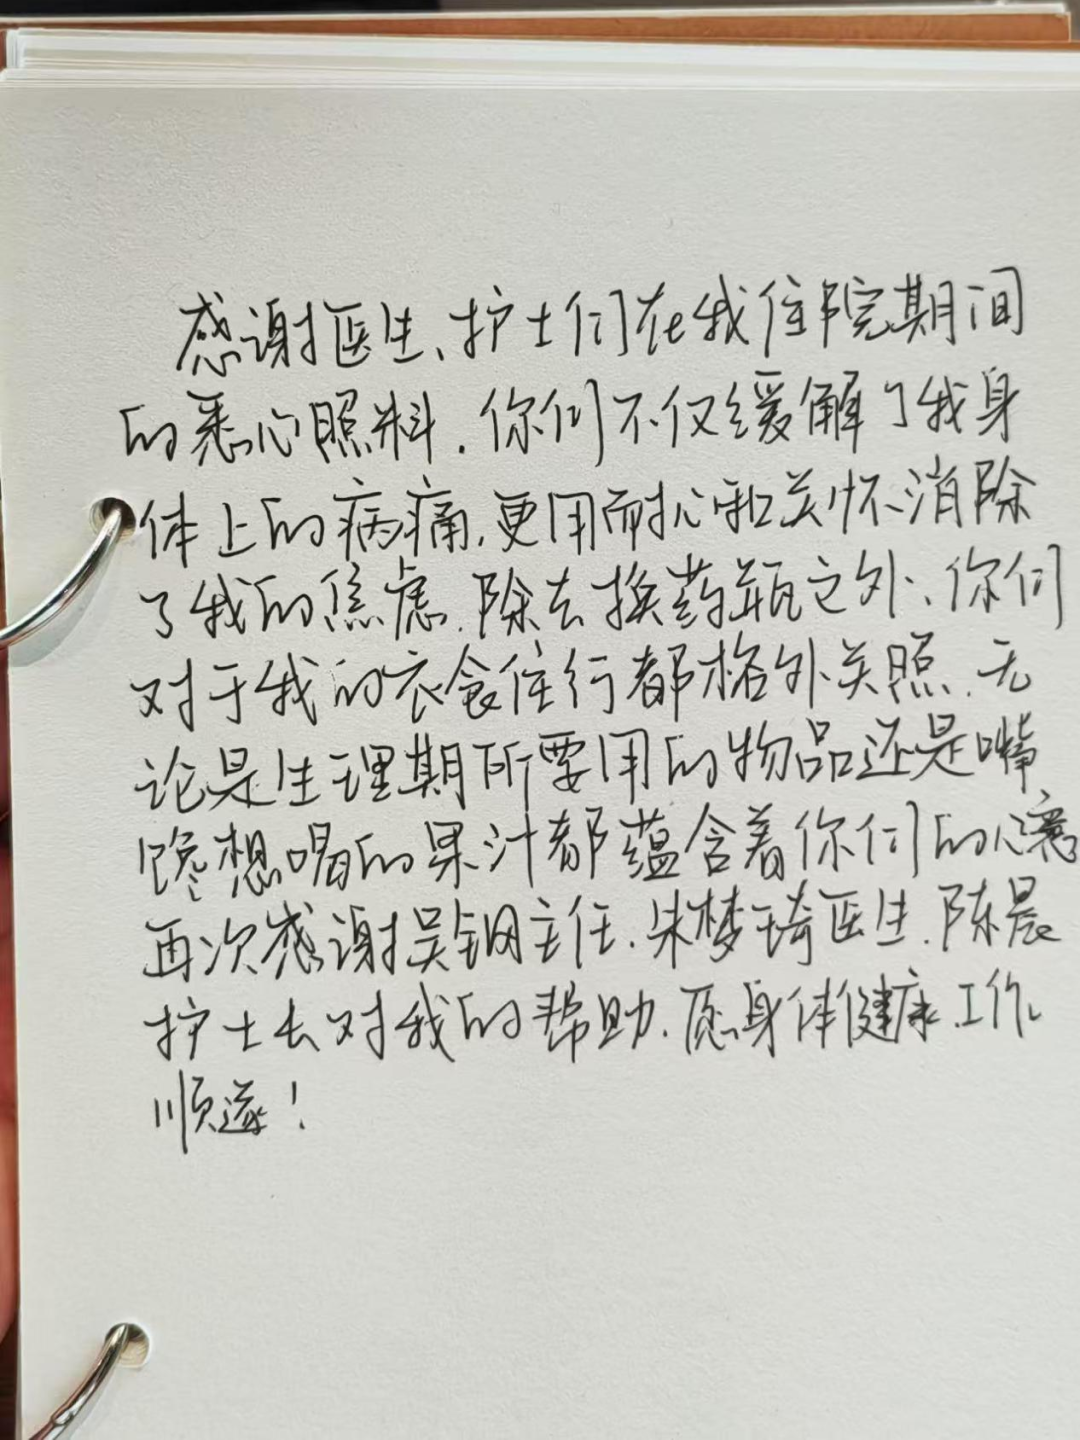 感谢医生、护士们在我住院期间
的悉心照料.你们不仅缓解了我身
体上的病痛,更用耐心和关怀消除
了我的焦虑.除去换药瓶之外、你们
对于我的衣食住行都格外关照.无
论是生理期所要用的物品还是嘴
馋想喝的果汁都蕴含着你们的心意
再次感谢吴钢主任.朱梦琦医生.陈晨
护士长对我的帮助.愿身体健康.工作
顺遂!